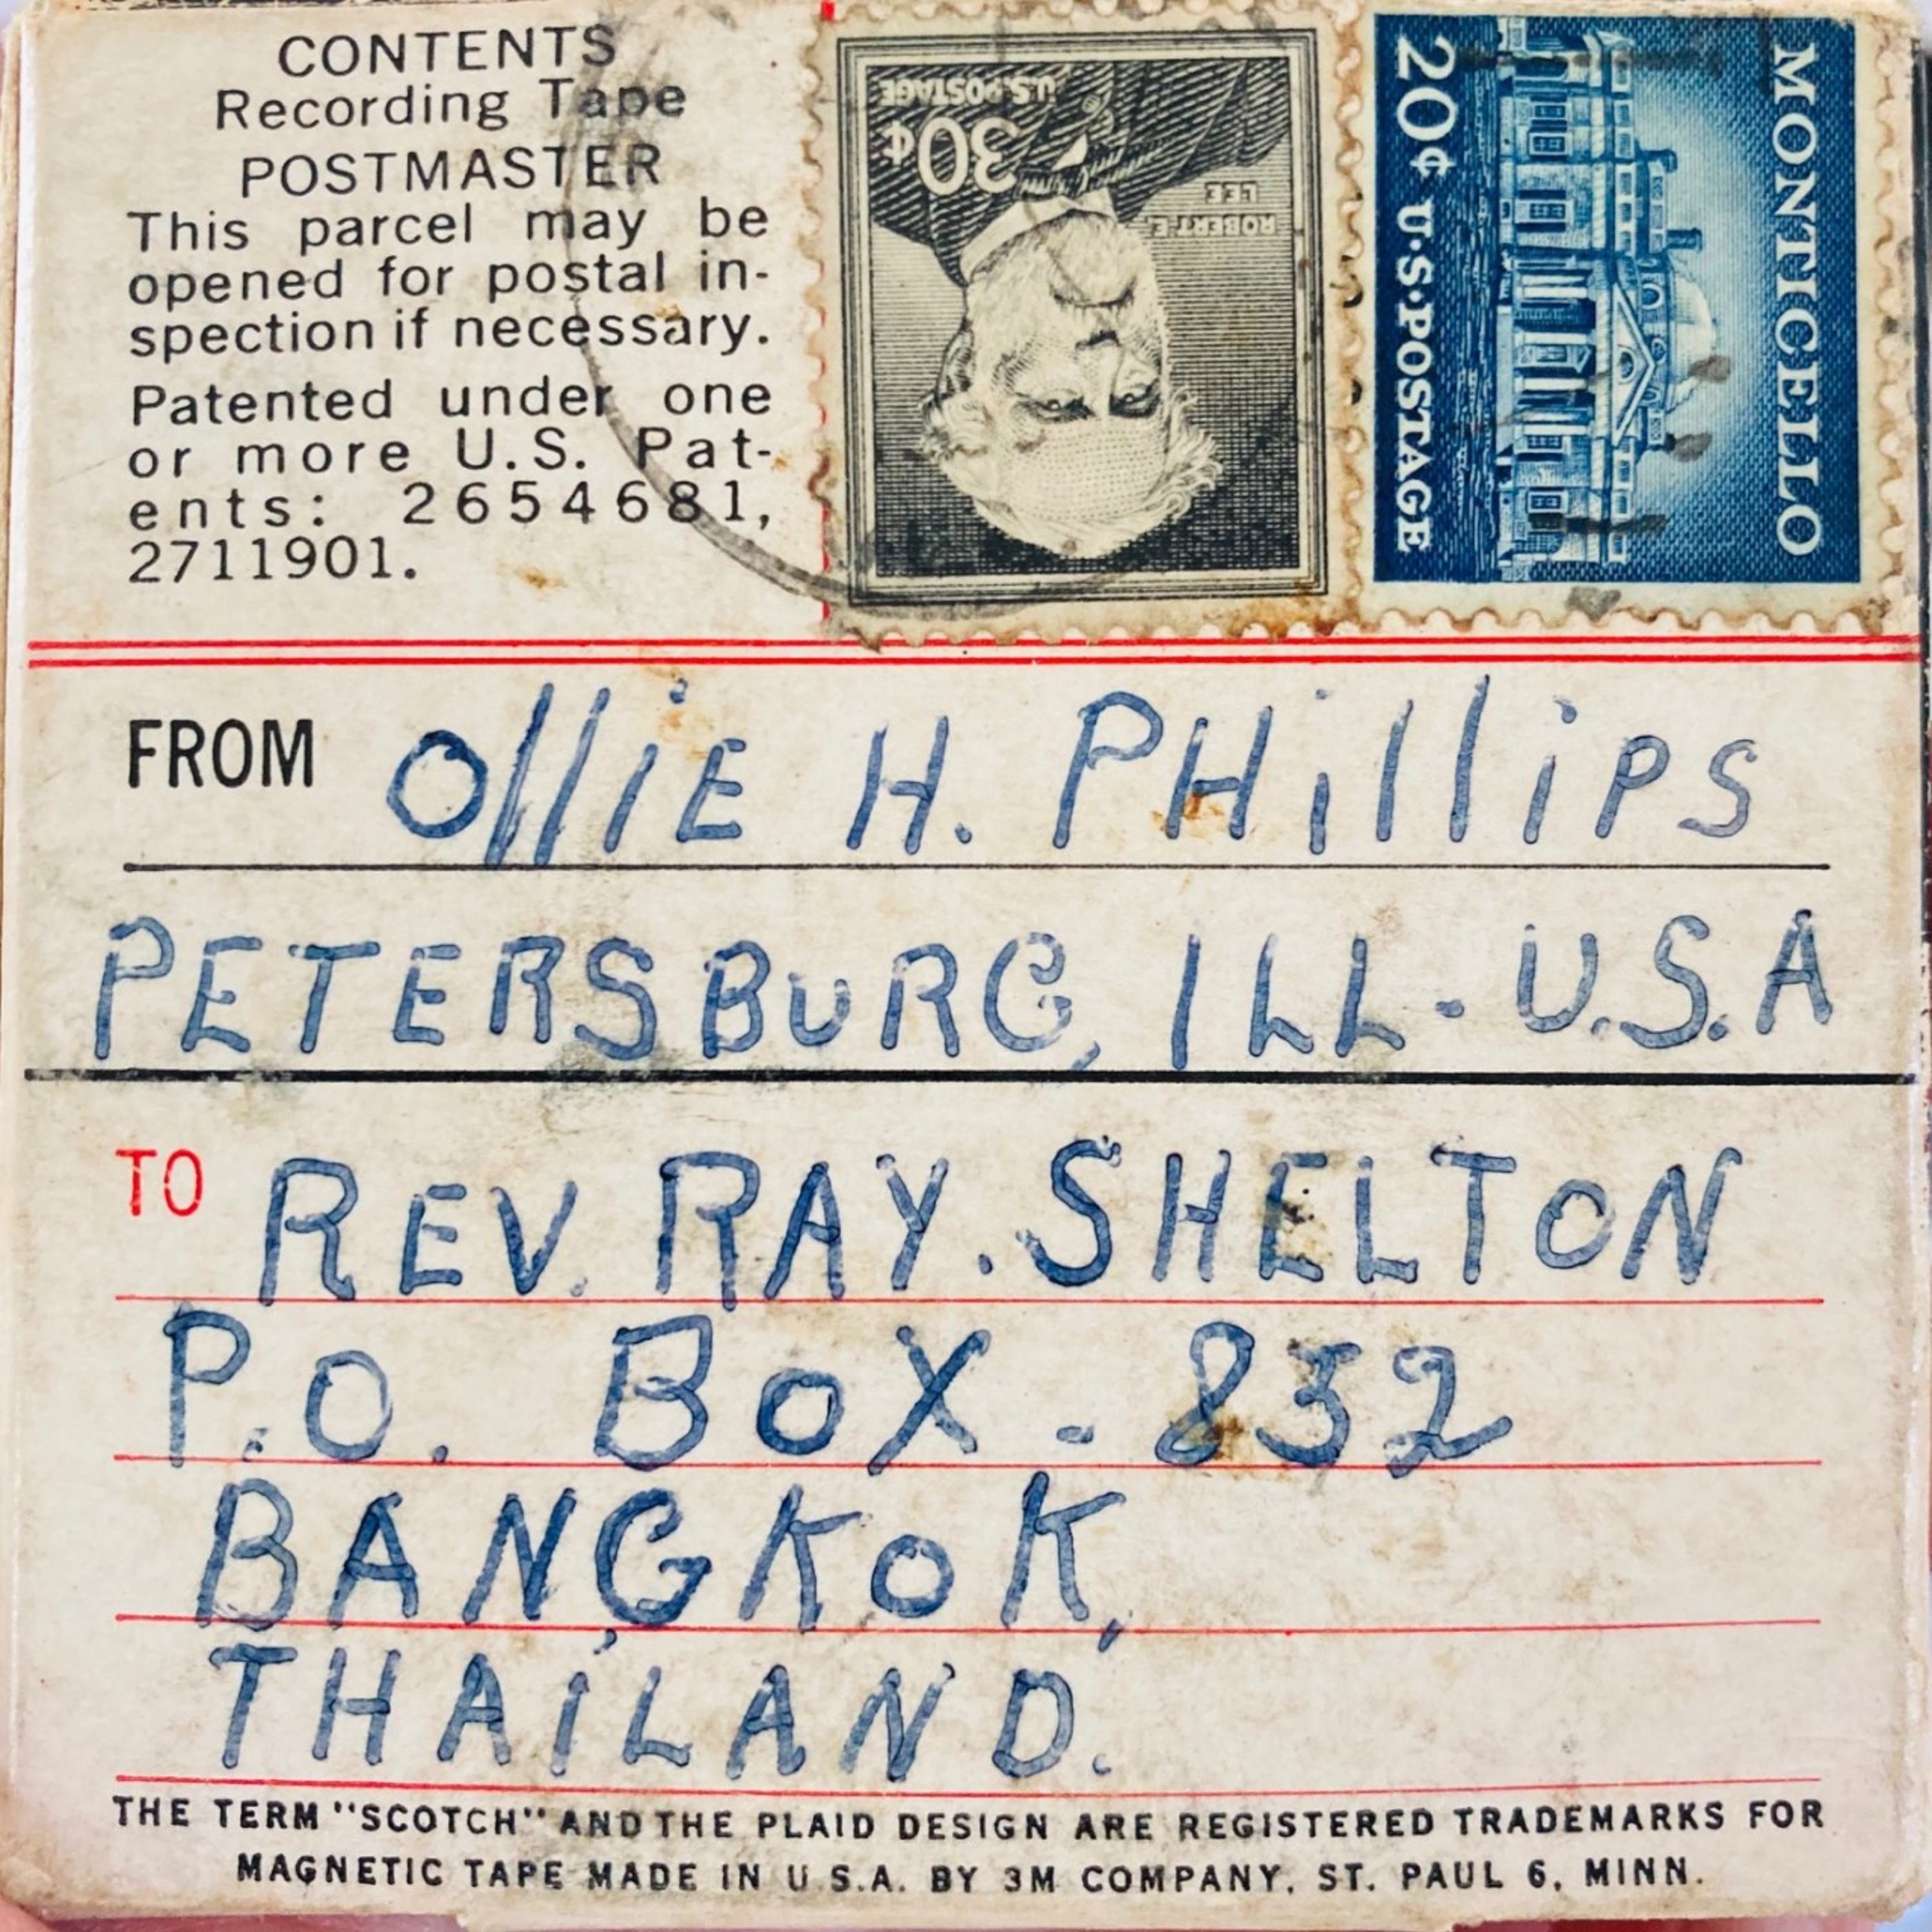 CONTENTS
Recording Tape
POSTMASTER
This parcel may be
opened for postal in-
spection if necessary.
Patented under one
or more U.S. Pat-
ents: 2654681,
2711901.
U.S. POSTAGE
30¢
ROBERT E.
LEE
MONTICELLO
20¢ U·S·POSTAGE
FROM OlliE H. PHillips
PETERSBURG, ILL - U.S.A
TO REV. RAY. SHELTON
P.O. BOX - 832
BANGKOK,
THAiLAND.
THE TERM "SCOTCH" AND THE PLAID DESIGN ARE REGISTERED TRADEMARKS FOR
MAGNETIC TAPE MADE IN U.S.A. BY 3M COMPANY, ST. PAUL 6, MINN.